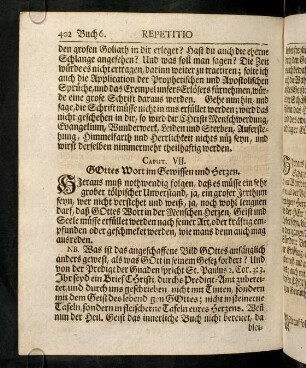 402 Buch 6. REPETITIO
den grosen Goliath in dir erleget? Hast du auch die eherne
Schlange angesehen? Und was soll man sagen? Die Zeit
würde es nicht ertragen, davon weiter zu tractiren; solte ich
auch die Application der Propheteischen und Apostolischen
Sprüche, und das Exempel unsers Erlösers fürnehmen, wür-
de eine grose Schrift daraus werden. Gehe nun hin, und
sage, die Schrift müsse nicht in uns erfüllet werden; wird das
nicht geschehen in dir, so wird dir Christi Menschwerdung,
Evangelium, Wunderwerk, Leiden und Sterben, Auferste-
hung, Himmelfarth und Herrlichkeit nichts nütz seyn, und
wirst derselben nimmermehr theilhaftig werden.
CAPUT. VII.
GOttes Wort im Gewissen und Herzen.
Hieraus muß nothwendig folgen, daß es müsse ein sehr
grober tölpischer Unverstand, ja, ein großer Irrthum
seyn, wer nicht verstehet und weiß, ja, noch wohl leugnen
darf, daß GOttes Wort in der Menschen Herzen, Geist und
Seele müsse erfüllet werden nach seiner Art, oder kräftig em-
pfunden oder geschmecket werden, wie mans denn auch mag
ausreden.
NB. Was ist das angeschaffene Bild GOttes anfänglich
anders gewest, als was GOtt in seinem Gesetz fordert? Und
von der Predigt der Gnaden spricht St. Paulus 2. Cor. 3: 3.
Ihr seyd ein Brief Christi, durchs Predigt-Amt zuberei-
tet, und durch uns geschrieben nicht mit Tinten, sondern
mit dem Geist des lebend gen GOttes; nicht in steinerne
Tafeln, sondern in fleischerne Tafeln eures Herzens. Wenn
nun der Heil. Geist das innerliche Buch nicht bereitet, da
blei-